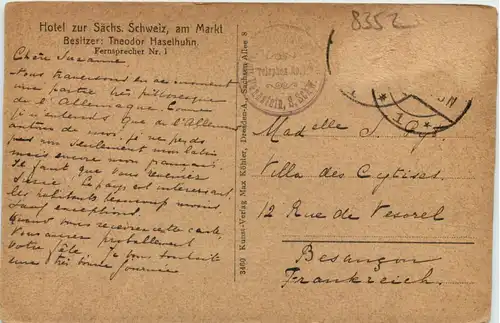 Hotel zur Sächs. Schweiz, am Markt
Besitzer: Theodor Haselhuhn
Fernsprecher Nr. 1
8352
Chère Suzanne
Nous traversons en ce moment
une partie très pittoresque
de l'Allemagne. Comme
je n'entends que de l'Allemand
autour de moi, je ne perds
pas non seulement mon latin
mais encore mon français.
Il faut que vous reveniez
Le pays est intéressant
les habitants beaucoup moins
sauf exceptions.
Quand vous recevrez cette carte,
vous aurez probablement
votre fête. Je vous souhaite
une très bonne journée
3469 Kunst-Verlag Max Köhler, Dresden-A., Sachsen Allee 8
Telephon No. 1
Madelle S.
Villa des Cytises
12 Rue de Vesoul
Besançon
Frankreich.